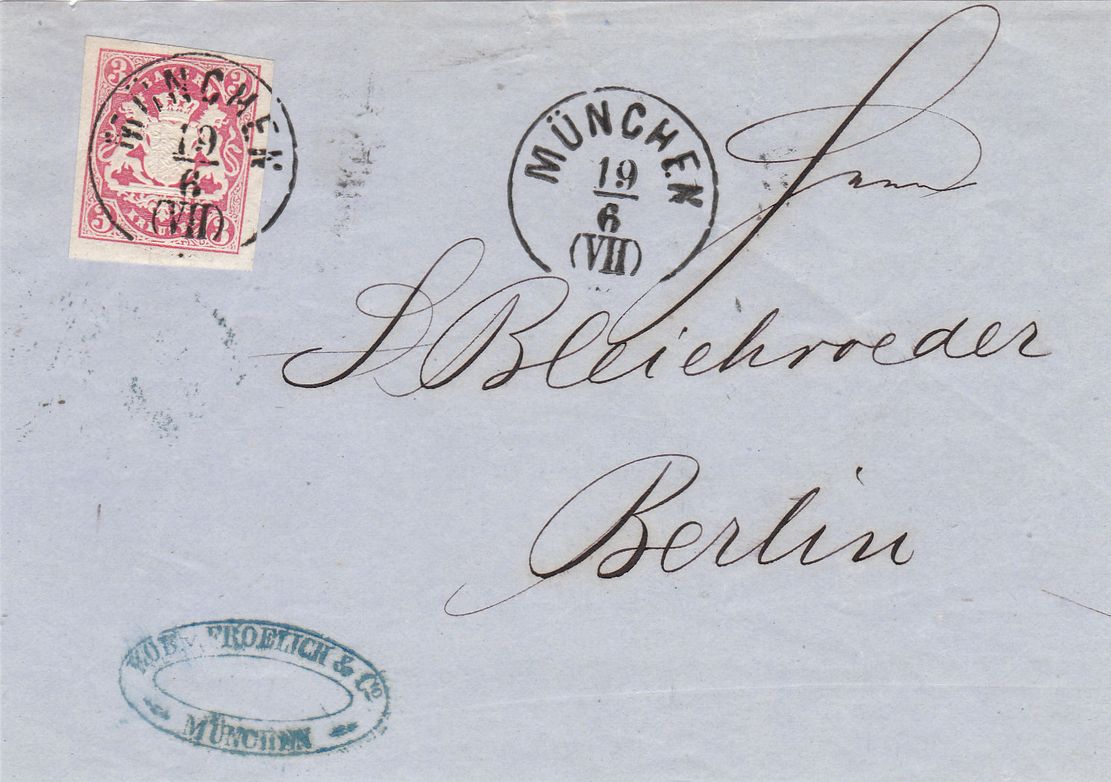 3 3
MÜNCHEN
19
6
(VII)
3 3
MÜNCHEN
19
6
(VII)
S Bleichroeder
Berlin
FROELICH & Co
MÜNCHEN